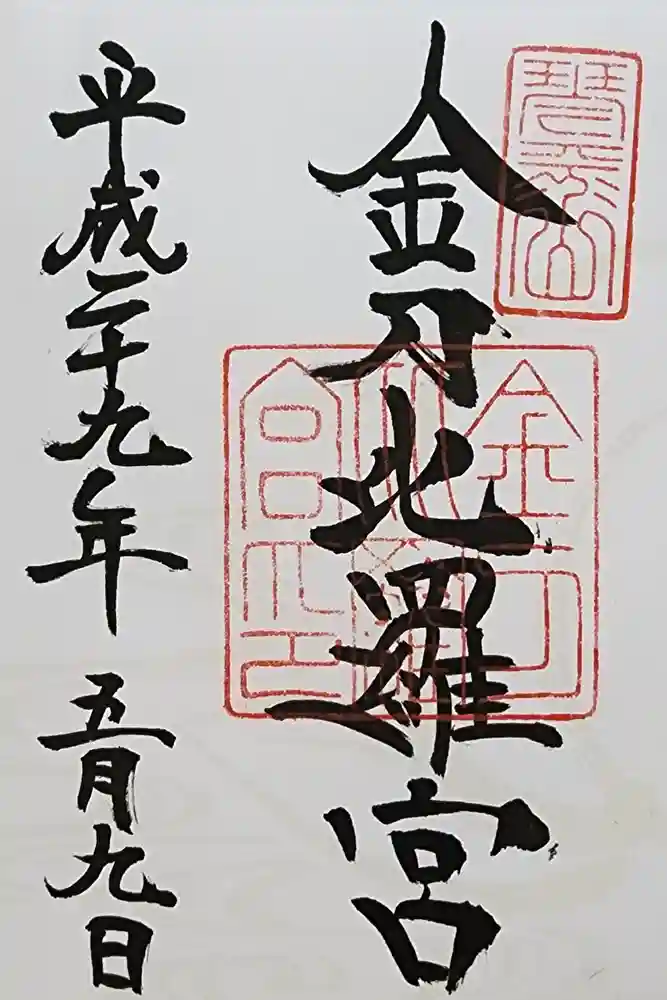 琴平山
金刀比羅宮
金刀
比羅
宮之印
平成二十九年 五月九日